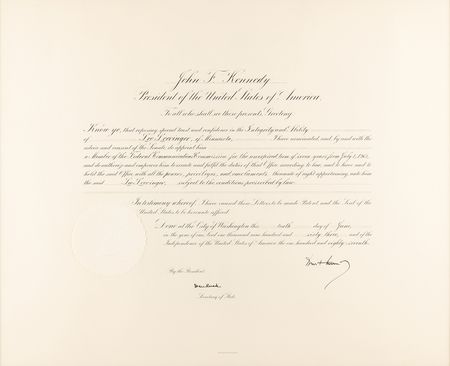 John F. Kennedy
President of the United States of America.
To all who shall see these presents, Greeting:
Know ye, that reposing special trust and confidence in the Integrity and Ability
of Lee Loevinger, of Minnesota, I have nominated, and, by and with the
advice and consent of the Senate, do appoint him
a Member of the Federal Communications Commission for the unexpired term of seven years from July 1, 1961,
and do authorize and empower him to execute and fulfil the duties of that Office according to law, and to have and to
hold the said Office, with all the powers, privileges, and emoluments thereunto of right appertaining, unto him
the said Lee Loevinger, subject to the conditions prescribed by law.
In testimony whereof, I have caused these Letters to be made Patent and the Seal of the
United States to be hereunto affixed.
Done at the City of Washington this tenth day of June,
in the year of our Lord one thousand nine hundred and sixty three, and of the
Independence of the United States of America the one hundred and eighty-seventh.
By the President:
Dean Rusk
Secretary of State.